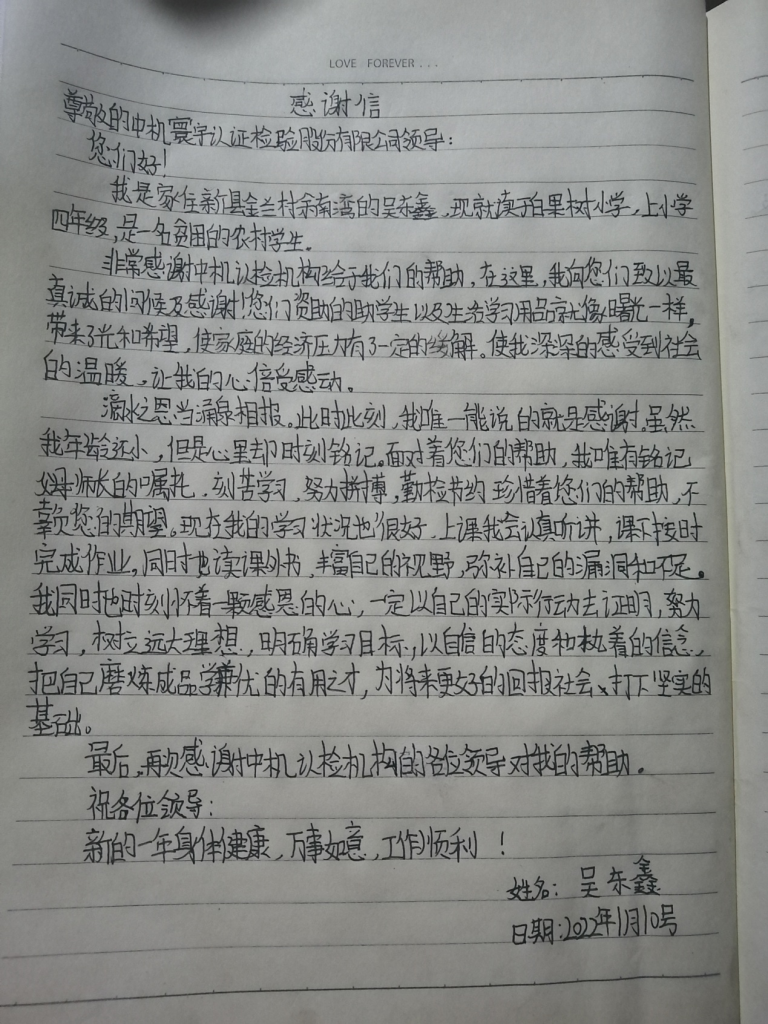 LOVE FOREVER...
感谢信
尊敬的中机寰宇认证检验股份有限公司领导:
您们好!
我是家住新县金兰村余南湾的吴东鑫,现就读于白果树小学,上小学
四年级,是一名贫困的农村学生。
非常感谢中机认检机构给于我们的帮助,在这里,我向您们致以最
真诚的问候及感谢!您们资助的助学生以及生活学习用品就像曙光一样,
带来了光和希望,使家庭的经济压力有了一定的缓解。使我深深的感受到社会
的温暖,让我的心倍受感动。
滴水之恩当涌泉相报。此时此刻,我唯一能说的就是感谢。虽然
我年龄还小,但是心里却时刻铭记。面对着您们的帮助,我唯有铭记
父母师长的嘱托,刻苦学习,努力拼搏,勤检节约珍惜着您们的帮助,不
辜负您的期望。现在我的学习状况也很好,上课我会认真听讲,课下按时
完成作业,同时也读课外书,丰富自己的视野,弥补自己的漏洞和不足。
我同时也时刻怀着一颗感恩的心,一定以自己的实际行动去证明,努力
学习,树立远大理想,明确学习目标,以自信的态度和执着的信念,
把自己磨炼成品学兼优的有用之才,为将来更好的回报社会、打下坚实的
基础。
最后,再次感谢中机认检机构的各位领导对我的帮助。
祝各位领导:
新的一年身体健康,万事如意,工作顺利!
姓名:吴东鑫
日期:2022年1月10号